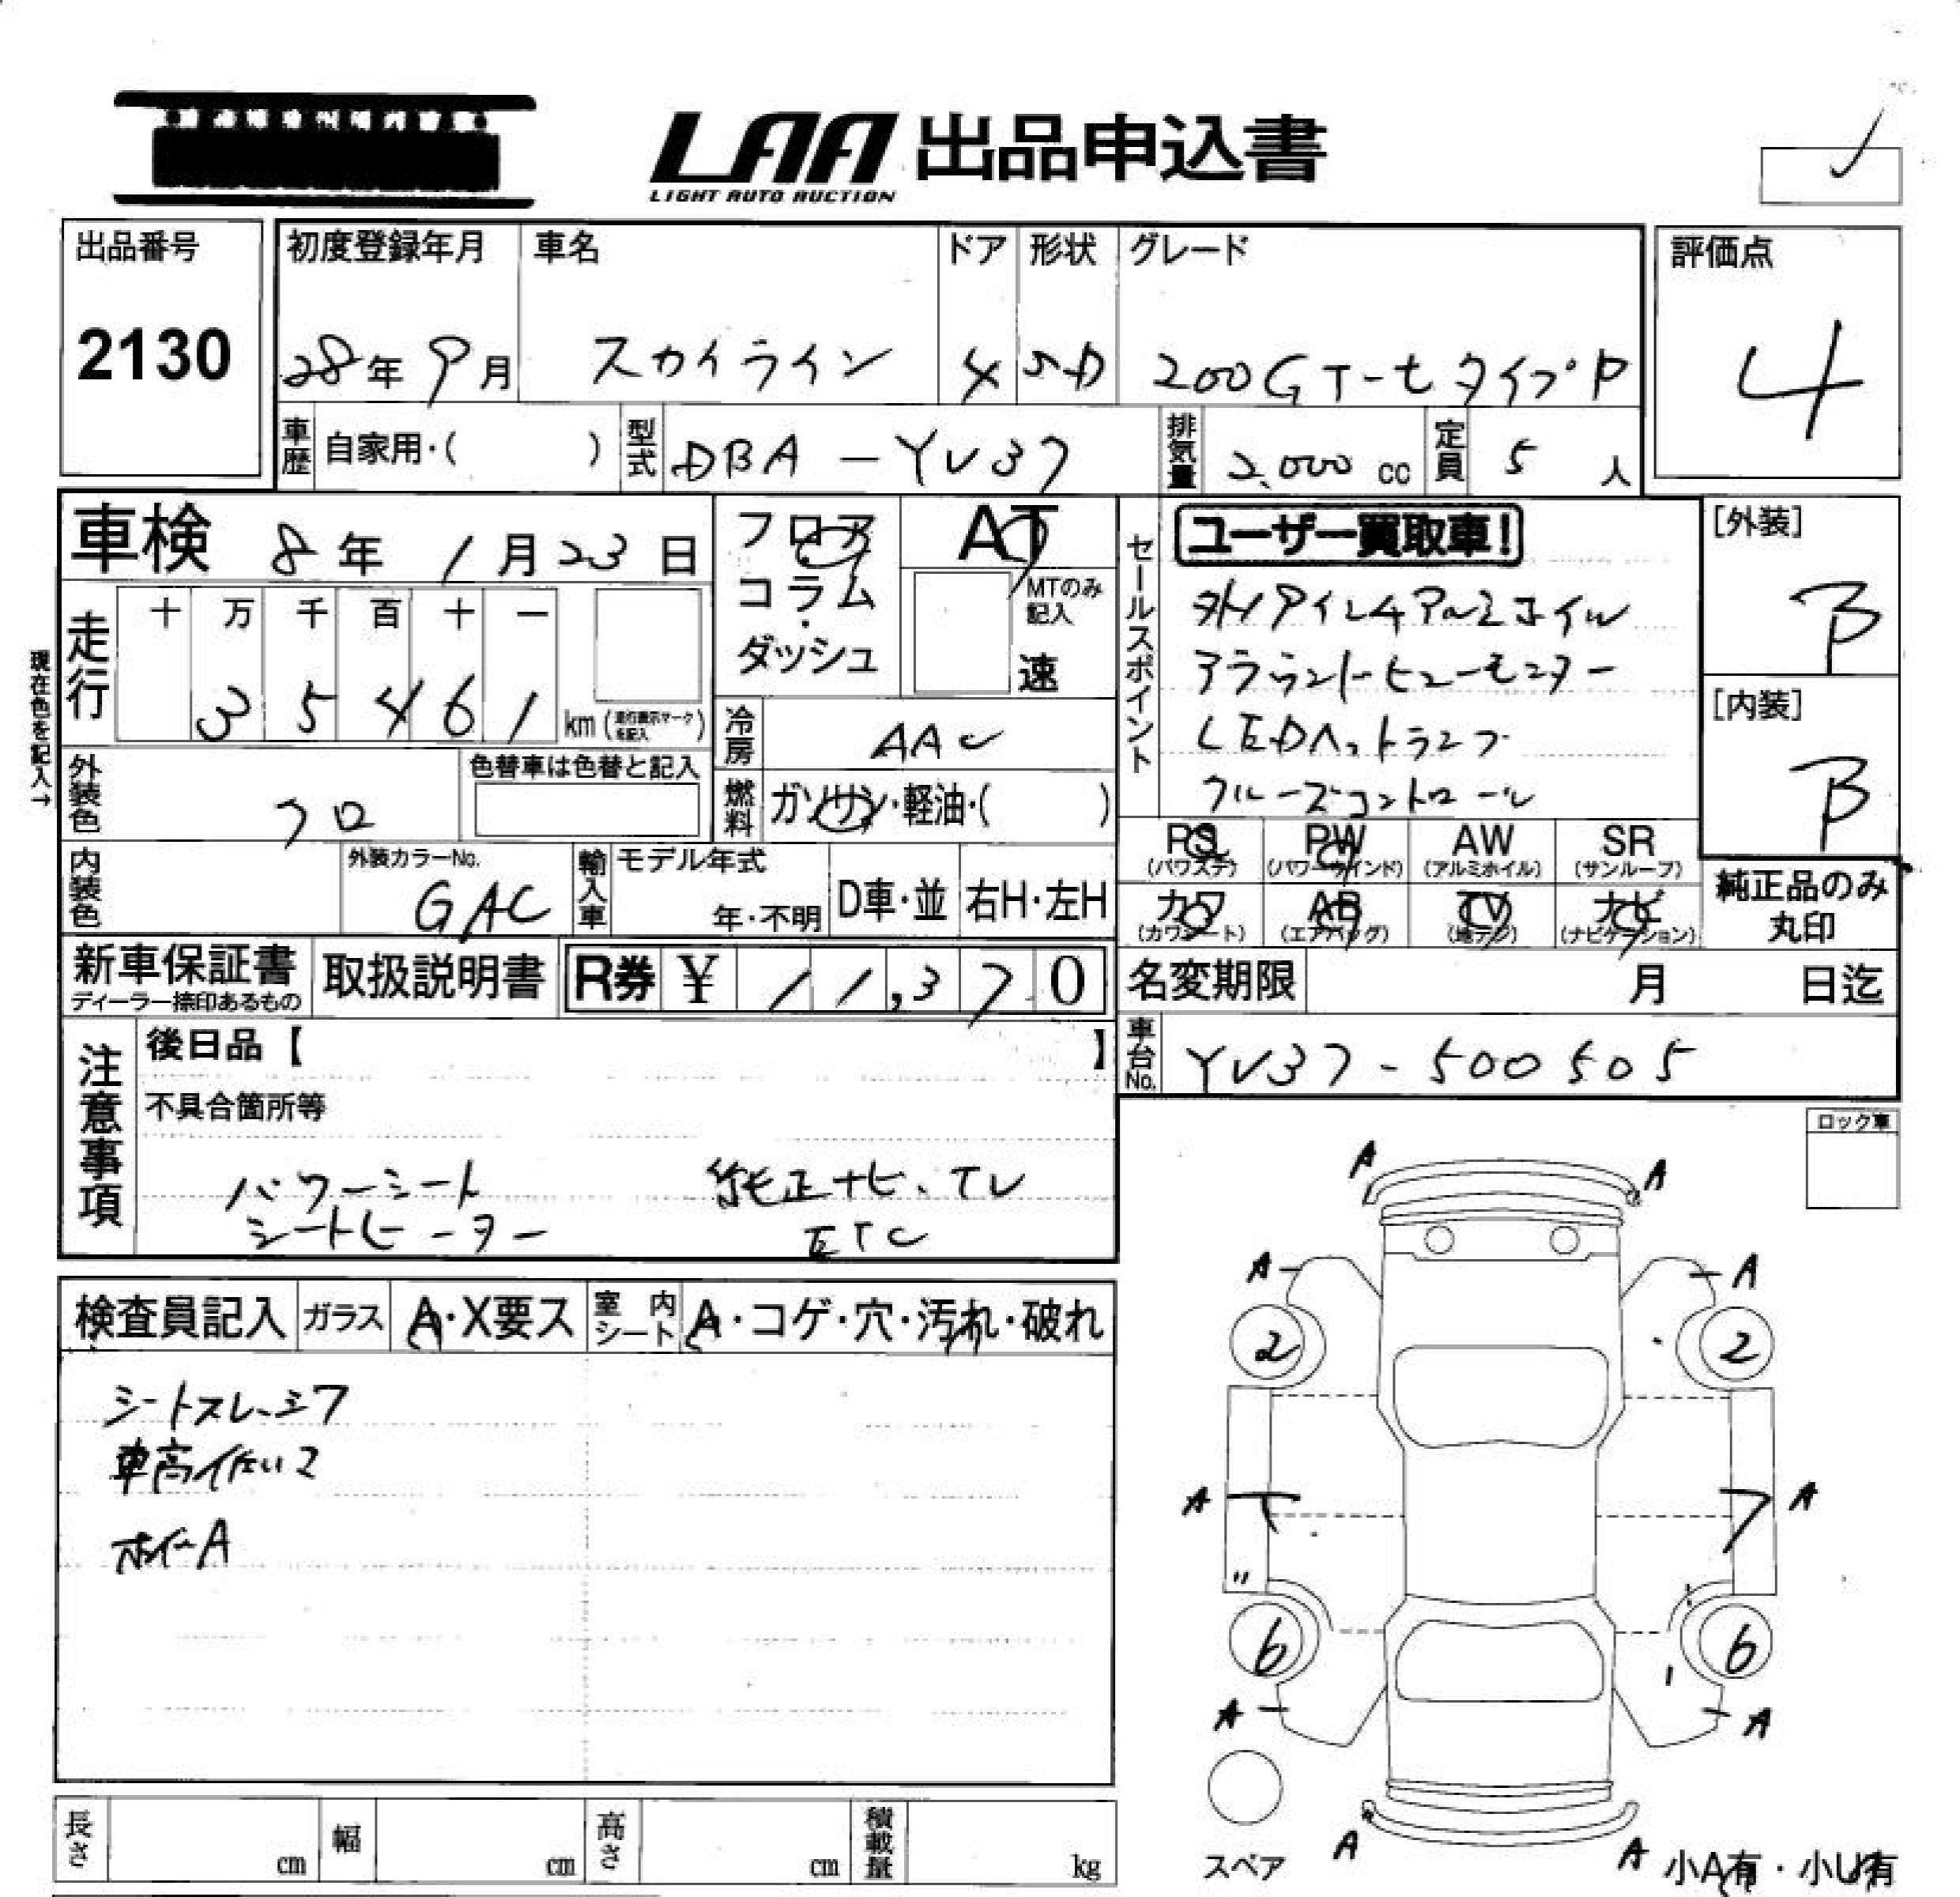 LAA 出品申込書
LIGHT AUTO AUCTION
出品番号
2130
初度登録年月
28年9月
車名
スカイライン
ドア
4
形状
SD
グレード
200GT-tタイプP
評価点
4
車歴 自家用・( )
型式 DBA-YV37
排気量 2,000 cc
定員 5 人
車検 8年1月23日
フロア・コラム・ダッシュ
AT
MTのみ記入
速
走行 十 万 千 百 十 一
3 5 4 6 1 km (走行表示マークを記入)
現在色を記入→
冷房 AAC
外装色 クロ
色替車は色替と記入
燃料 ガソリン・軽油・( )
内装色
外装カラーNo.
GAC
輸入車
モデル年式
年・不明
D車・並
右H・左H
セールスポイント
ユーザー買取車!
外19アイレイアルミホイル
アラウンドビューモニター
LEDヘッドランプ
クルーズコントロール
[外装]
B
[内装]
B
PS (パワステ)
PW (パワーウインド)
AW (アルミホイル)
SR (サンルーフ)
カワ (カワシート)
AB (エアバッグ)
TV (地デジ)
ナビ (ナビゲーション)
純正品のみ丸印
新車保証書
ディーラー捺印あるもの
取扱説明書
R券 ¥ 11,370
名変期限 月 日迄
車台No. YV37-500505
注意事項
後日品【 】
不具合箇所等
パワーシート 純正ナビ、TV
シートヒーター ETC
ロック車
検査員記入
ガラス A・X要ス
室内シート A・コゲ・穴・汚れ・破れ
シートスレ、シワ
車高低い2
ホイールA
A A
A A
2 2
A A
〃
6 6
A A
スペア
A A
小A有・小U有
長さ cm
幅 cm
高さ cm
積載量 kg